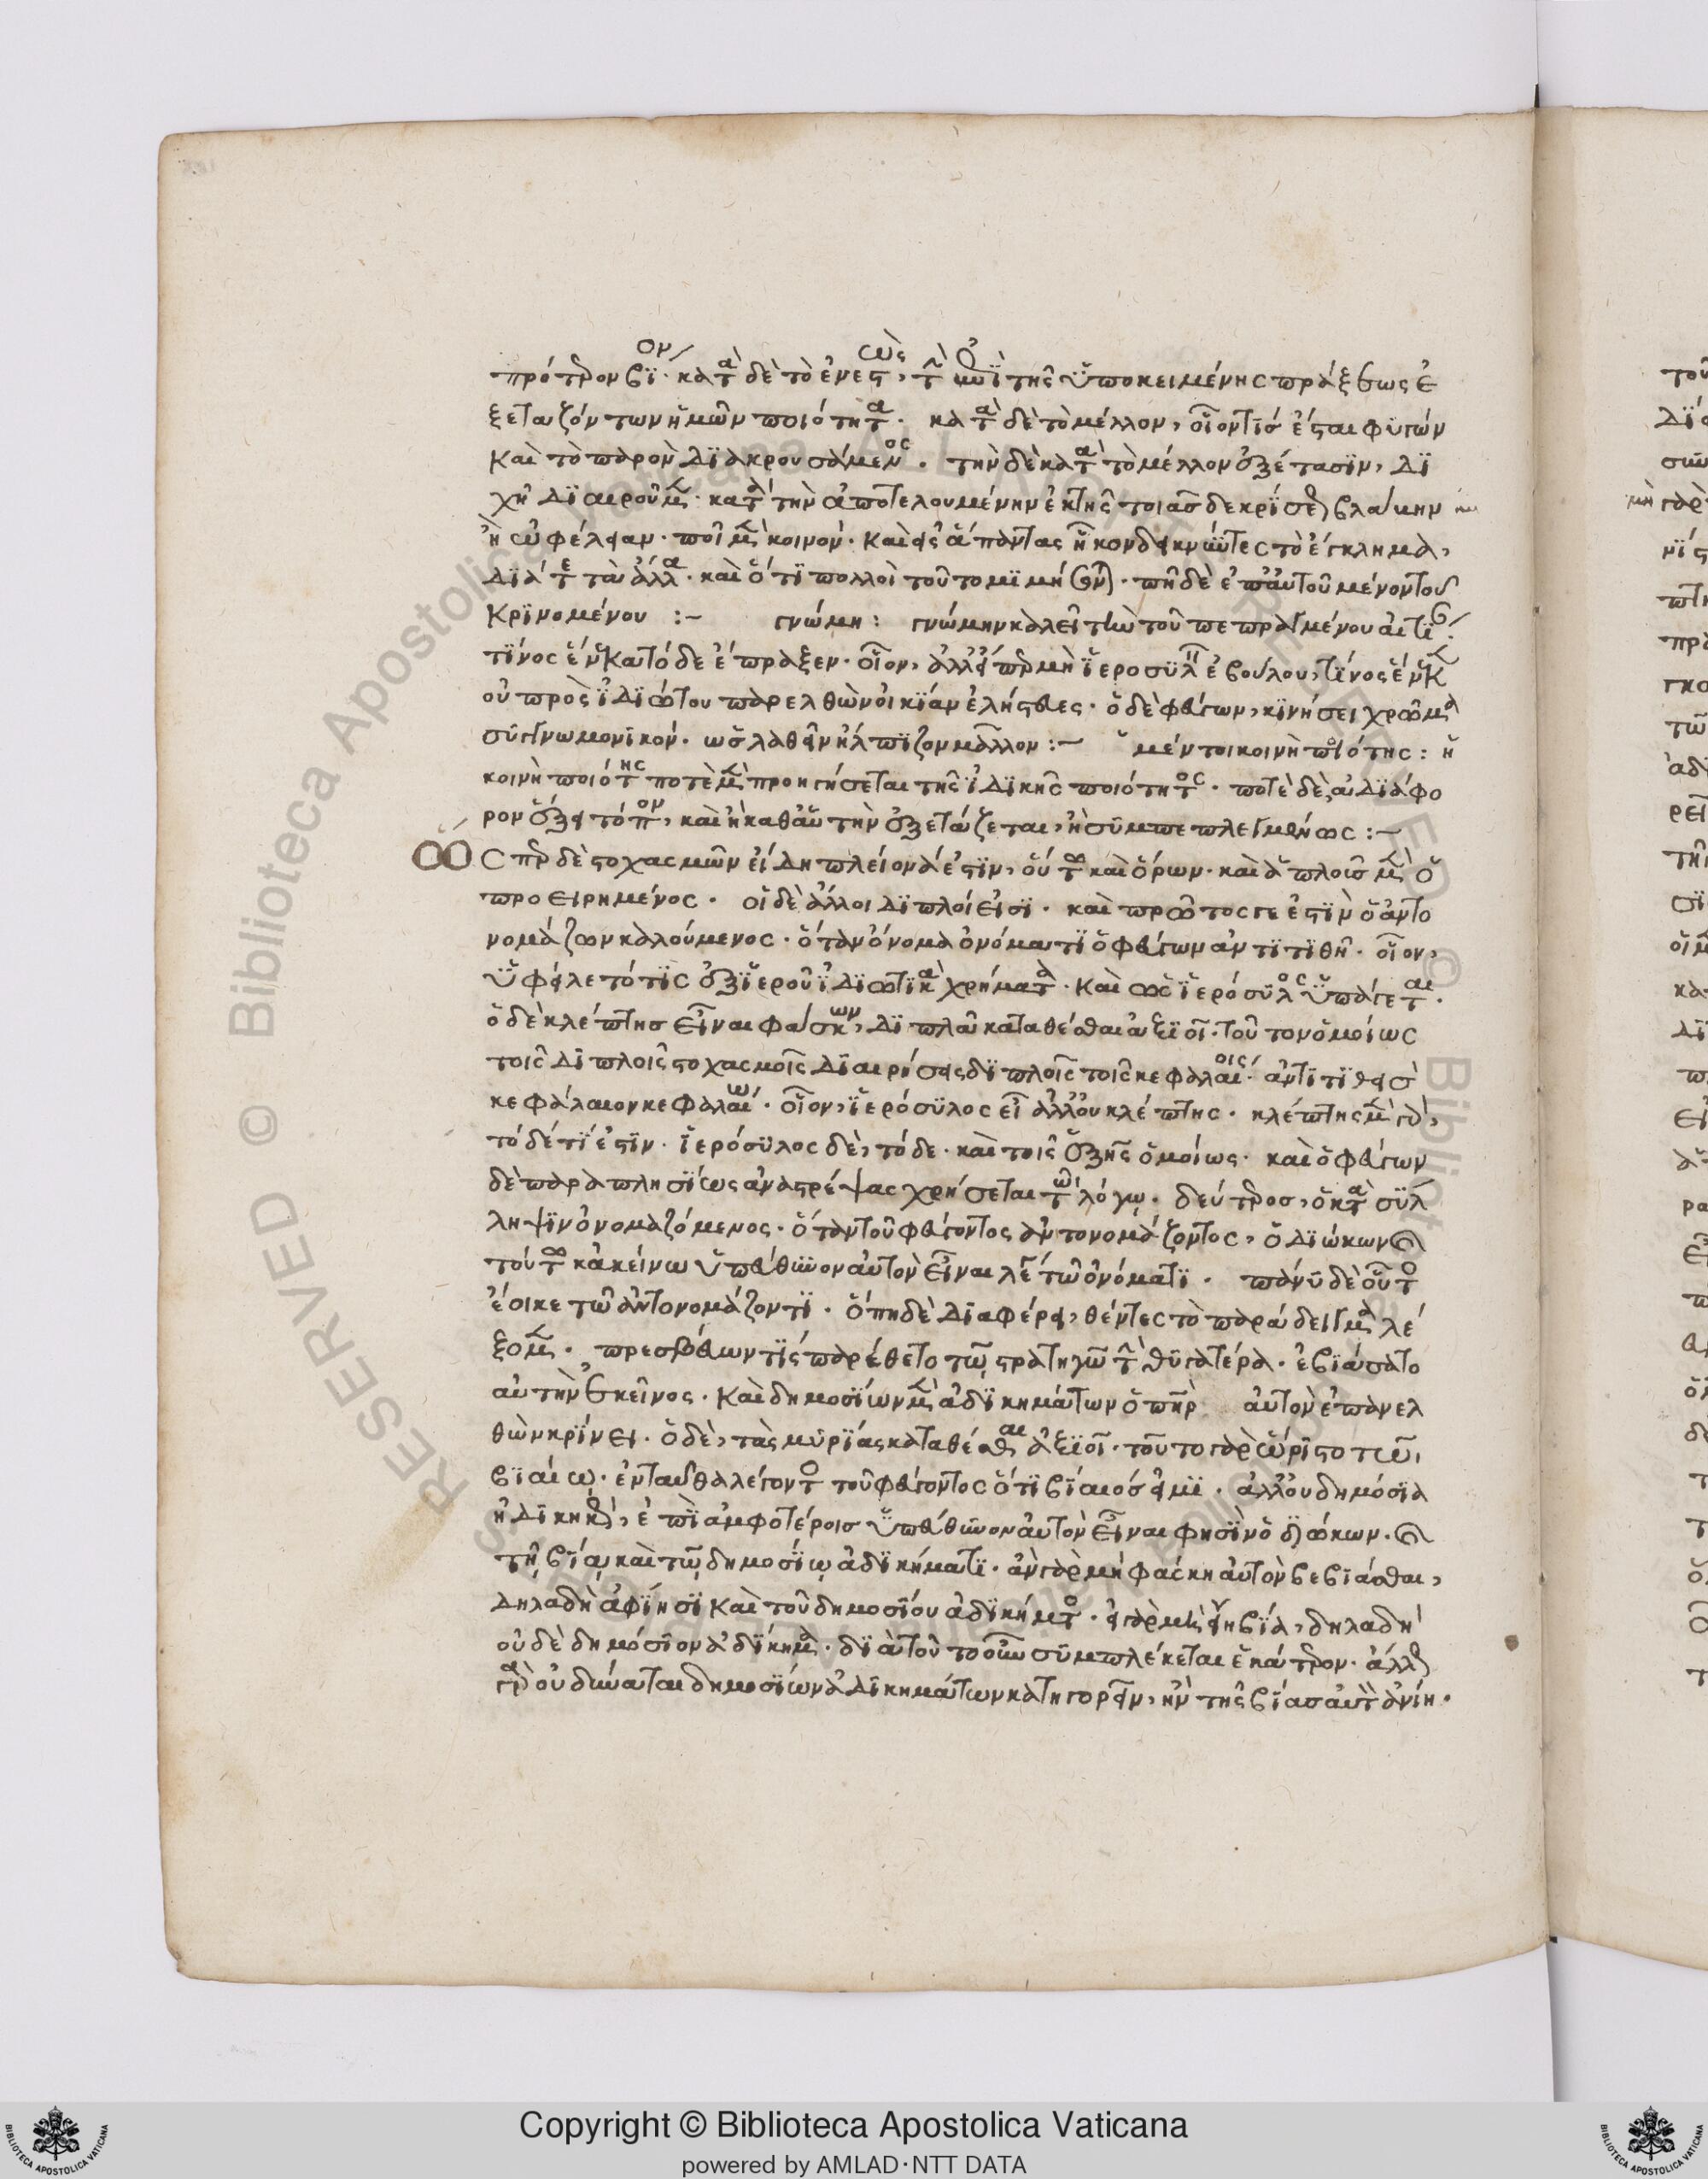 πρότερον βίον· κατὰ δὲ τὸ ἐνεστὼς, τὴν τῆς ὑποκειμένης πράξεως ἐ
ξεταζόντων ἡμῶν ποιότητα. κατὰ δὲ τὸ μέλλον, οἷον τίς ἔσται φυγών
καὶ τὸ παρὸν διακρουσάμενος. τὴν δὲ κατὰ τὸ μέλλον ἐξέτασιν, δι
χῆ διαιροῦμεν· κατὰ τὴν ἀποτελουμένην ἐκ τῆς τοιᾶσδε κρίσεως βλάβην
ἢ ὠφέλειαν. ποῖ μὲν κοινὸν· καὶ εἰς ἅπαντας ἧκον δεικνύντες τὸ ἔγκλημα,
διά τε τὰ ἄλλα· καὶ ὅτι πολλοὶ τοῦτο μιμήσονται. πῆ δὲ ἐπ' αὐτοῦ μένον τοῦ
κρινομένου :~ γνώμη: γνώμην καλεῖ τὴν τοῦ πεπραγμένου αἰτίαν·
τίνος ἕνεκα τόδε ἔπραξεν. οἷον, ἀλλ' εἴπερ μὴ ἱεροσυλεῖν ἐβούλου, τίνος ἕνεκεν
οὐ πρὸς ἰδιώτου παρελθὼν οἰκίαν ἐλῄστευες. ὁ δὲ φεύγων, κινήσει χρῶμα
συγγνωμονικόν. ὡς λαθεῖν ἤλπιζον μᾶλλον :~ μέντοι κοινὴ ποιότης: ἡ
κοινὴ ποιότης ποτὲ μὲν προηγήσεται τῆς ἰδικῆς ποιότητος. ποτὲ δὲ, ἀδιάφο
ρον ἕξει τόπον, καὶ ἢ καθ' αὑτὴν ἐξετάζεται, ἢ συμπεπλεγμένως :~
Ὥσπερ δὲ στοχασμῶν εἴδη πλείονά ἐστιν, οὕτω καὶ ὅρων. καὶ ἁπλοῦς μὲν ὁ
προειρημένος. οἱ δὲ ἄλλοι διπλοί εἰσι. καὶ πρῶτος γε ἐστὶν ὁ ἀντο
νομάζων καλούμενος· ὅταν ὄνομα ὀνόματι ὁ φεύγων ἀντιτιθῇ. οἷον,
ὑφείλετό τις ἐξ ἱεροῦ ἰδιωτικὰ χρήματα. καὶ ὡς ἱερόσυλος ὑπάγεται.
ὁ δὲ κλέπτης εἶναι φάσκων, διπλᾶ καταθέσθαι ἀξιοῖ. τοῦτον ὁμοίως
τοῖς διπλοῖς στοχασμοῖς διαιρήσεις διπλοῖς τοῖς κεφαλαίοις· ἀντιτιθεὶς
κεφάλαιον κεφαλαίῳ. οἷον, ἱερόσυλος εἶ ἀλλ' οὐ κλέπτης. κλέπτης μὲν γὰρ,
τόδέ τί ἐστιν. ἱερόσυλος δὲ, τόδε. καὶ τοῖς ἑξῆς ὁμοίως. καὶ ὁ φεύγων
δὲ παραπλησίως ἀναστρέψας χρήσεται τῷ λόγῳ. δεύτερος, ὁ κατὰ σύλ
ληψιν ὀνομαζόμενος. ὅταν τοῦ φεύγοντος ἀντονομάζοντος, ὁ διώκων
τούτῳ κἀκείνῳ ὑπεύθυνον αὐτὸν εἶναι λέγῃ τῷ ὀνόματι. πάνυ δὲ οὗτος
ἔοικε τῷ ἀντονομάζοντι. ὅπη δὲ διαφέρει, θέντες τὸ παράδειγμα λέ
ξομεν. πρεσβεύων τίς παρέθετο τῷ στρατηγῷ τὴν θυγατέρα. ἐβιάσατο
αὐτὴν ἐκεῖνος. καὶ δημοσίων μὲν ἀδικημάτων ὁ πατὴρ αὐτὸν ἐπανελ
θὼν κρίνει. ὁ δὲ, τὰς μυρίας καταθέσθαι ἀξιοῖ. τοῦτο γὰρ ὥριστο τῷ
βιαίῳ. ἐνταῦθα λέγοντος τοῦ φεύγοντος ὅτι βίαιός εἰμι. ἀλλ' οὐ δημόσια
ἠδικηκὼς, ἐπὶ ἀμφοτέροις ὑπεύθυνον αὐτὸν εἶναι φησὶν ὁ διώκων.
τῇ βίᾳ, καὶ τῷ δημοσίῳ ἀδικήματι. ἂν γὰρ μὴ φάσκῃ αὐτὸν βεβιάσθαι,
δηλαδὴ ἀφίησι καὶ τοῦ δημοσίου ἀδικήματος. εἰ γὰρ μὴ εἴη βία, δηλαδὴ
οὐδὲ δημόσιον ἀδίκημα. διὰ τοῦτο οὖν συμπλέκεται ἑκάτερον. ἄλλως
γὰρ οὐ δύναται δημοσίων ἀδικημάτων κατηγορεῖν, ἢν τῆς βίας αὐτὸν ἀνίῃ.